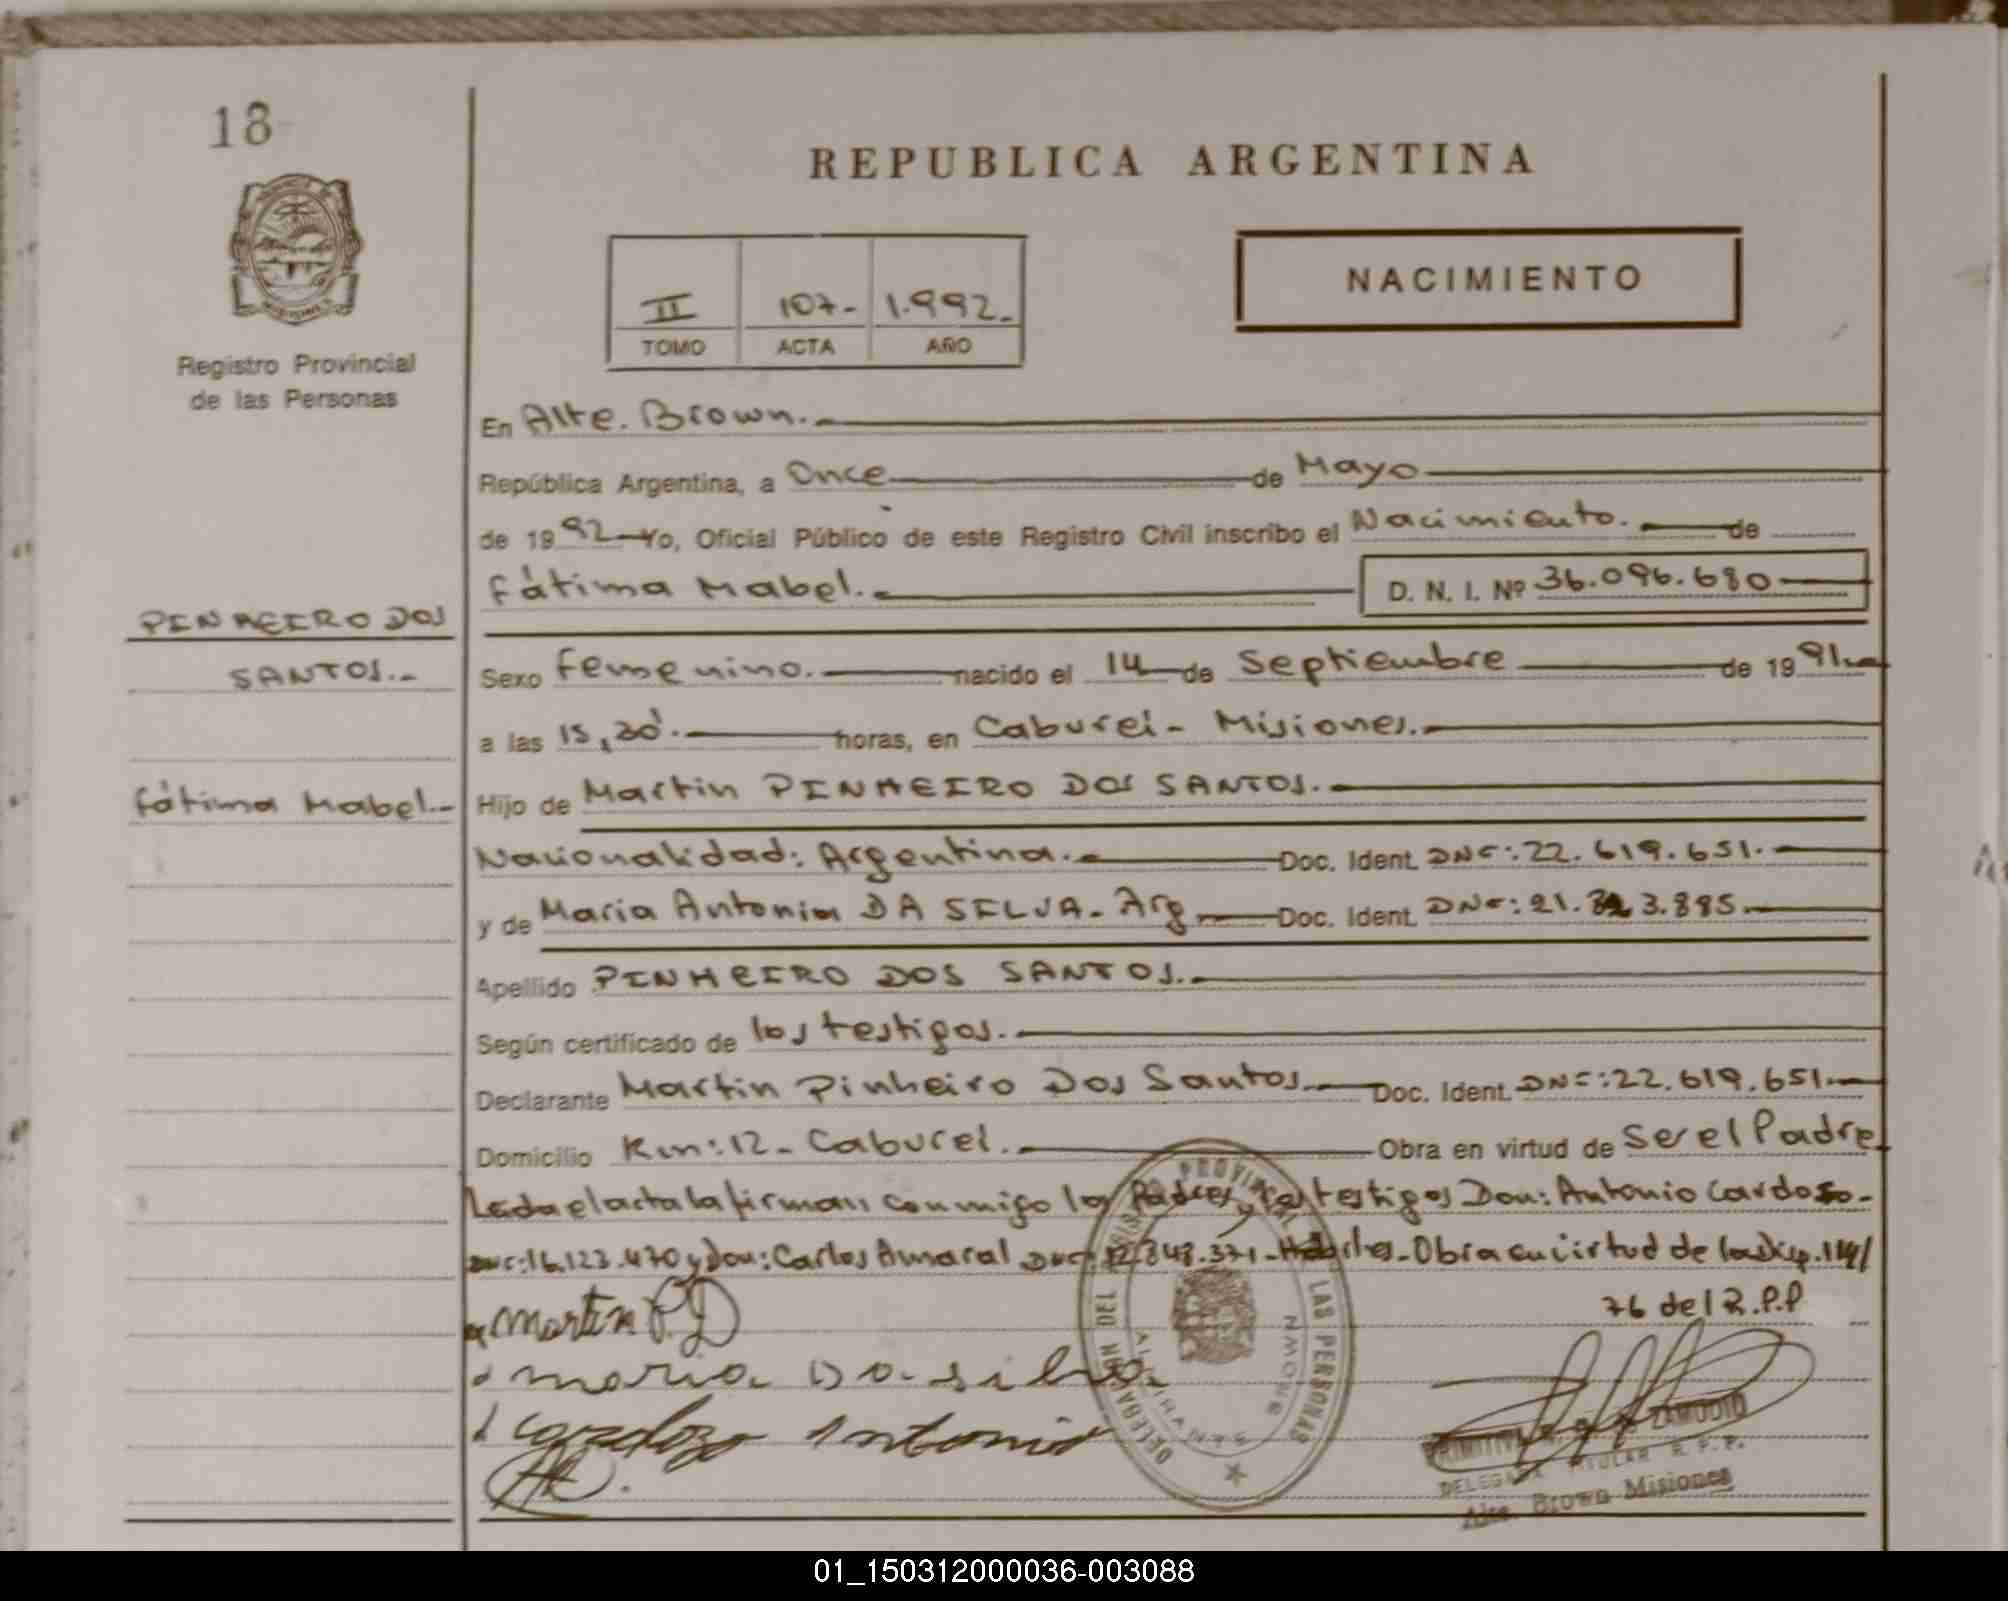 18
REPUBLICA ARGENTINA
NACIMIENTO
II 107- 1.992_
TOMO ACTA AÑO
Registro Provincial
de las Personas
En Alte. Brown.
República Argentina, a Once de Mayo
de 1992 Yo, Oficial Público de este Registro Civil inscribo el Nacimiento. de
Fátima Mabel. D. N. I. Nº 36.096.680
PINHEIRO DOS
SANTOS.-
Sexo Femenino. nacido el 14 de Septiembre de 1991.
a las 15,30'. horas, en Caburei- Misiones.
Fátima Mabel.-
Hijo de Martin PINHEIRO DOS SANTOS.
Nacionalidad: Argentina. Doc. Ident. DNI: 22.619.651.
y de Maria Antonia DA SILVA- Arg Doc. Ident. DNI: 21. 3.885.
Apellido PINHEIRO DOS SANTOS.
Según certificado de los testigos.
Declarante Martin Pinheiro Dos Santos Doc. Ident. DNI: 22.619.651.
Domicilio Km: 12- Caburei. Obra en virtud de Ser el Padre
Leida el acta la firman conmigo los Padres y los testigos Don: Antonio Cardozo-
DNI: 16.123.470 y Don: Carlos Amaral DNI: 12.848.371-Hábiles- Obra en virtud de la Disp. 114/
76 del R.P.P
Martin P. D
maria Da silva
Cardozo Antonio
DELEGACION DEL REGISTRO PROVINCIAL DE LAS PERSONAS
ALMIRANTE BROWN
PRIMITIVA ZAMUDIO
DELEGADA TITULAR R.P.P.
Alte. Brown Misiones
01_150312000036-003088